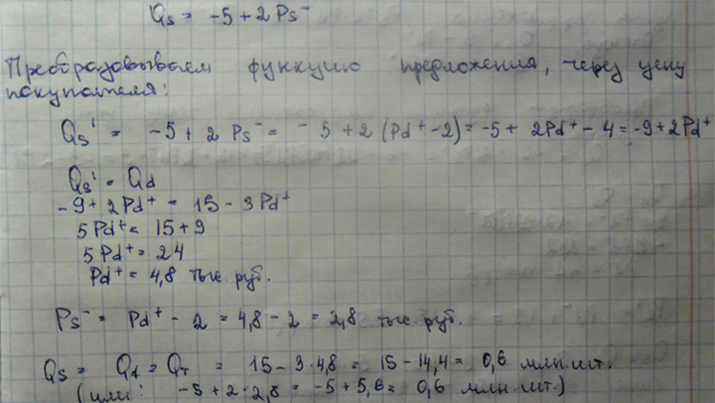 Qs = -5 + 2 Ps⁻
Преобразовываем функцию предложения, через цену
покупателя:
Qs' = -5 + 2 Ps⁻ = -5 + 2 (Pd⁺ - 2) = -5 + 2Pd⁺ - 4 = -9 + 2Pd⁺
Qs' = Qd
-9 + 2Pd⁺ = 15 - 3Pd⁺
5Pd⁺ = 15 + 9
5Pd⁺ = 24
Pd⁺ = 4,8 тыс руб.
Ps⁻ = Pd⁺ - 2 = 4,8 - 2 = 2,8 тыс руб.
Qs = Qd = Qт = 15 - 3·4,8 = 15 - 14,4 = 0,6 млн.шт.
(или: -5 + 2·2,8 = -5 + 5,6 = 0,6 млн.шт.)